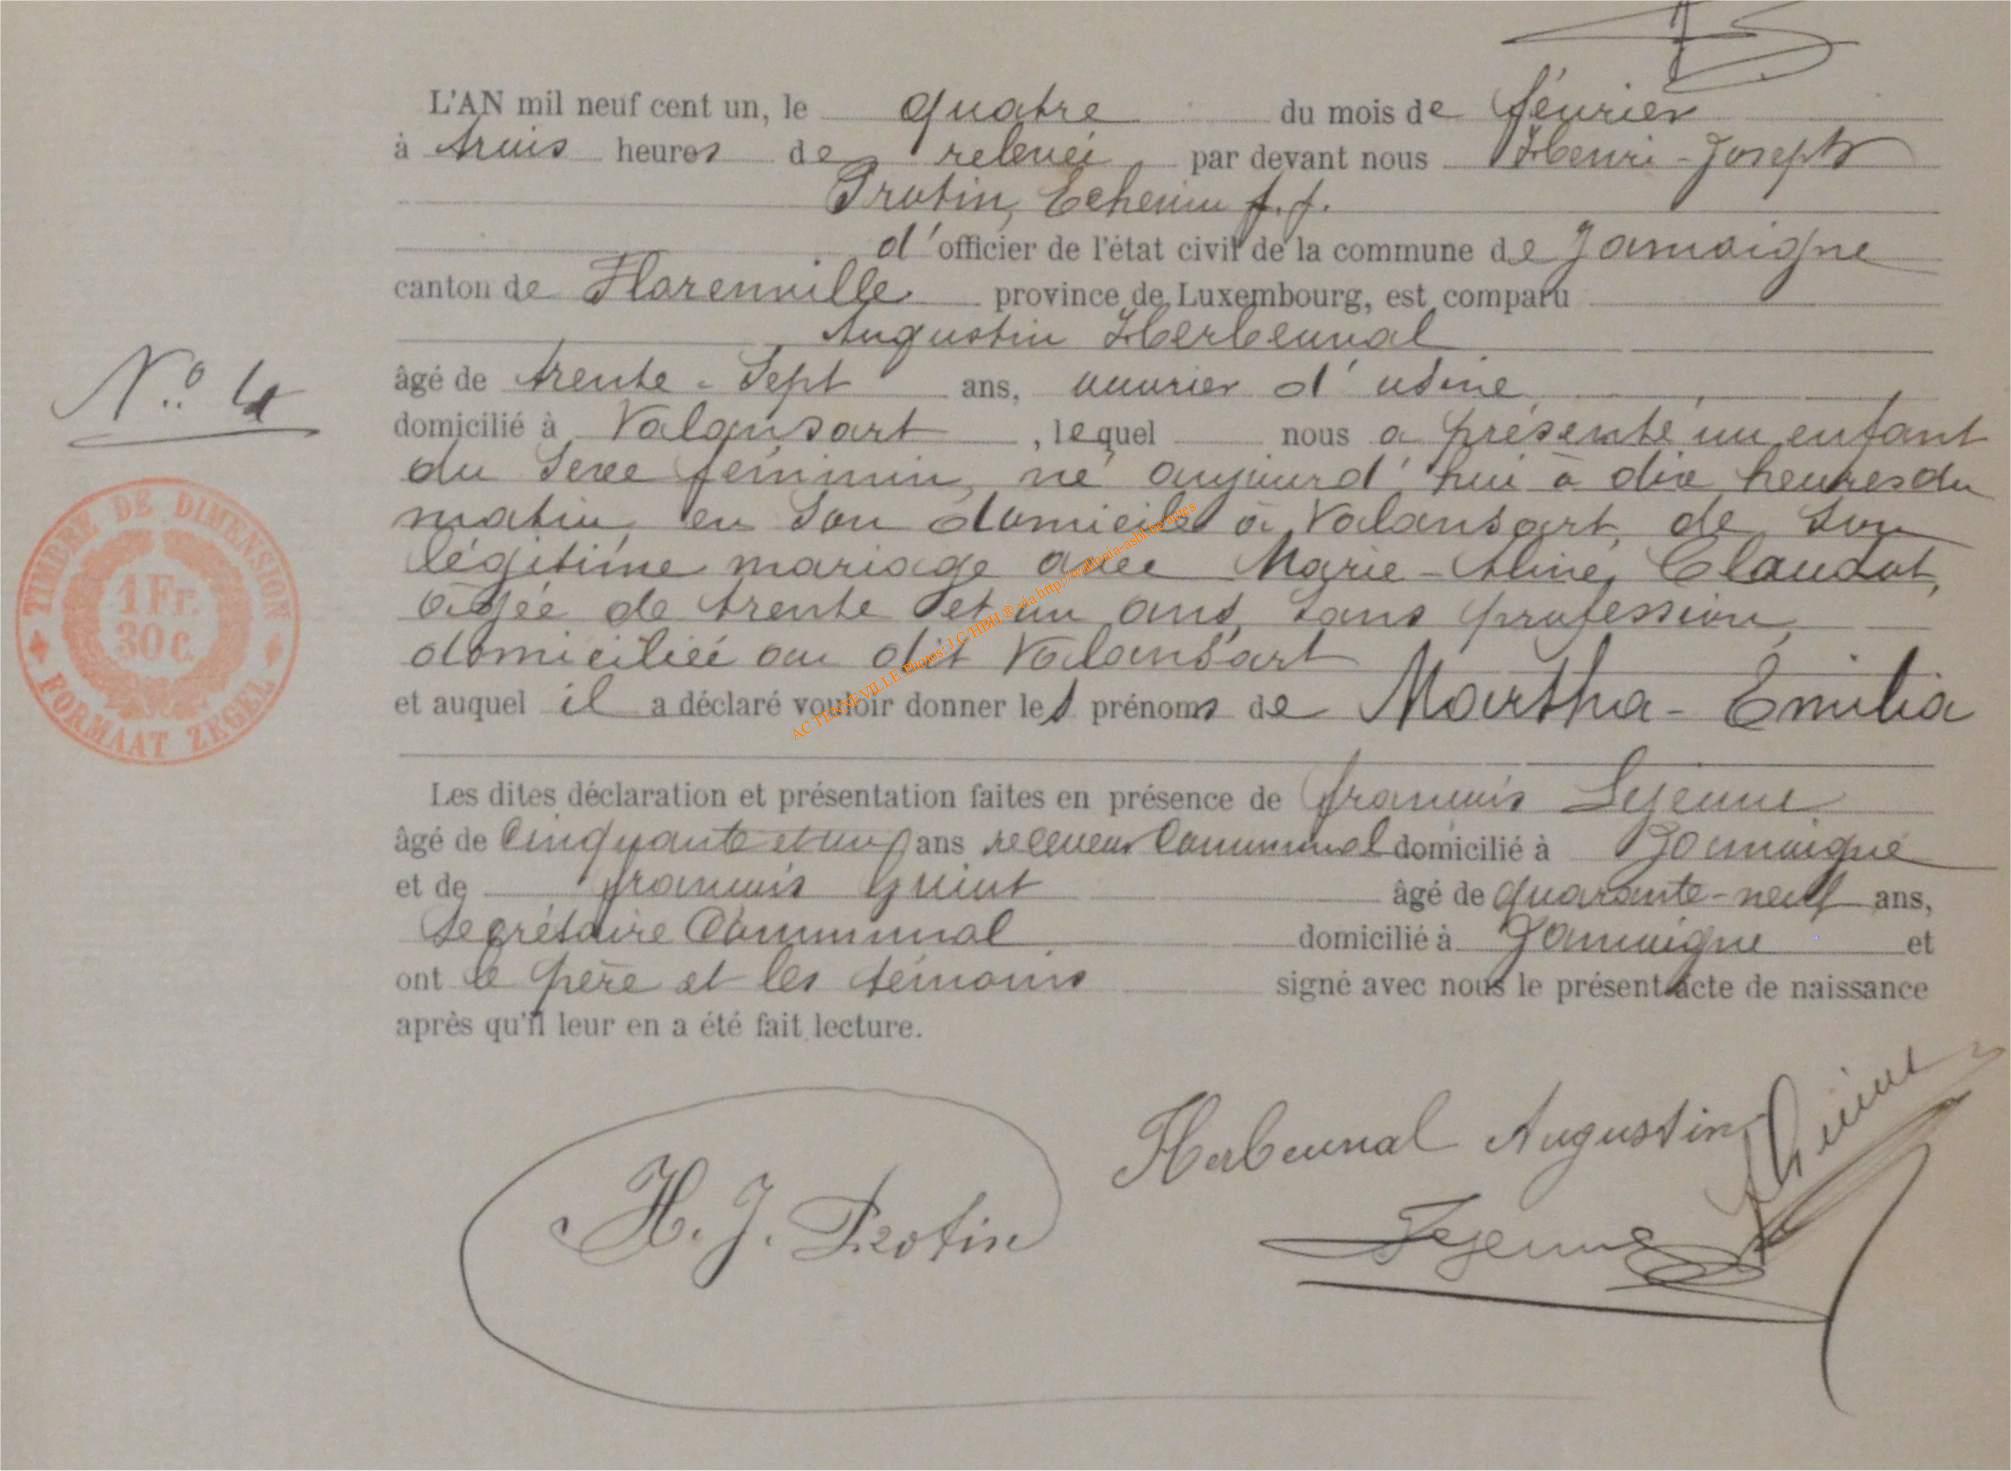 L'AN mil neuf cent un, le quatre du mois de février
à trois heures de relevée, par devant nous Henri-Joseph
Protin, Echevin f.f.
d'officier de l'état civil de la commune de Jamoigne
canton de Florenville province de Luxembourg, est comparu
Augustin Herbeuval
âgé de trente-sept ans, ouvrier d'usine
domicilié à Valansart, lequel nous a présenté un enfant
N.° 4
du sexe féminin, né aujourd'hui à dix heures du
matin, en son domicile à Valansart, de son
légitime mariage avec Marie-Aline, Claudot,
âgée de trente et un ans, sans profession,
domiciliée au dit Valansart
et auquel il a déclaré vouloir donner les prénoms de Martha-Emilia
TIMBRE DE DIMENSION
1 Fr.
30 c.
FORMAAT ZEGEL
Les dites déclaration et présentation faites en présence de françois Lejeune
âgé de cinquante et un ans receveur Communal domicilié à Jamoigne
et de françois Guiut âgé de quarante-neuf ans,
Secrétaire Communal domicilié à Jamoigne et
ont le père et les témoins signé avec nous le présent acte de naissance
après qu'il leur en a été fait lecture.
Herbeuval Augustin
H. J. Protin
Lejeune